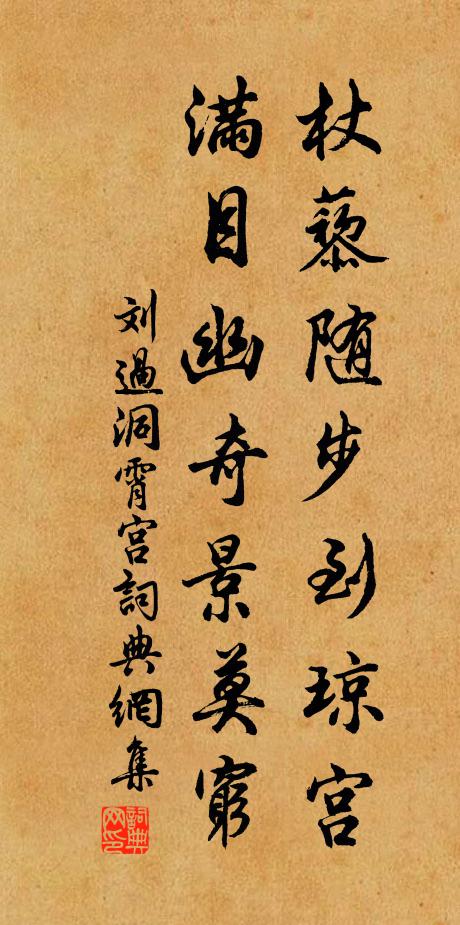 杖藜随步到琼宫
满目幽奇景莫穷
刘過洞霄宫詞典網集
詞典网印